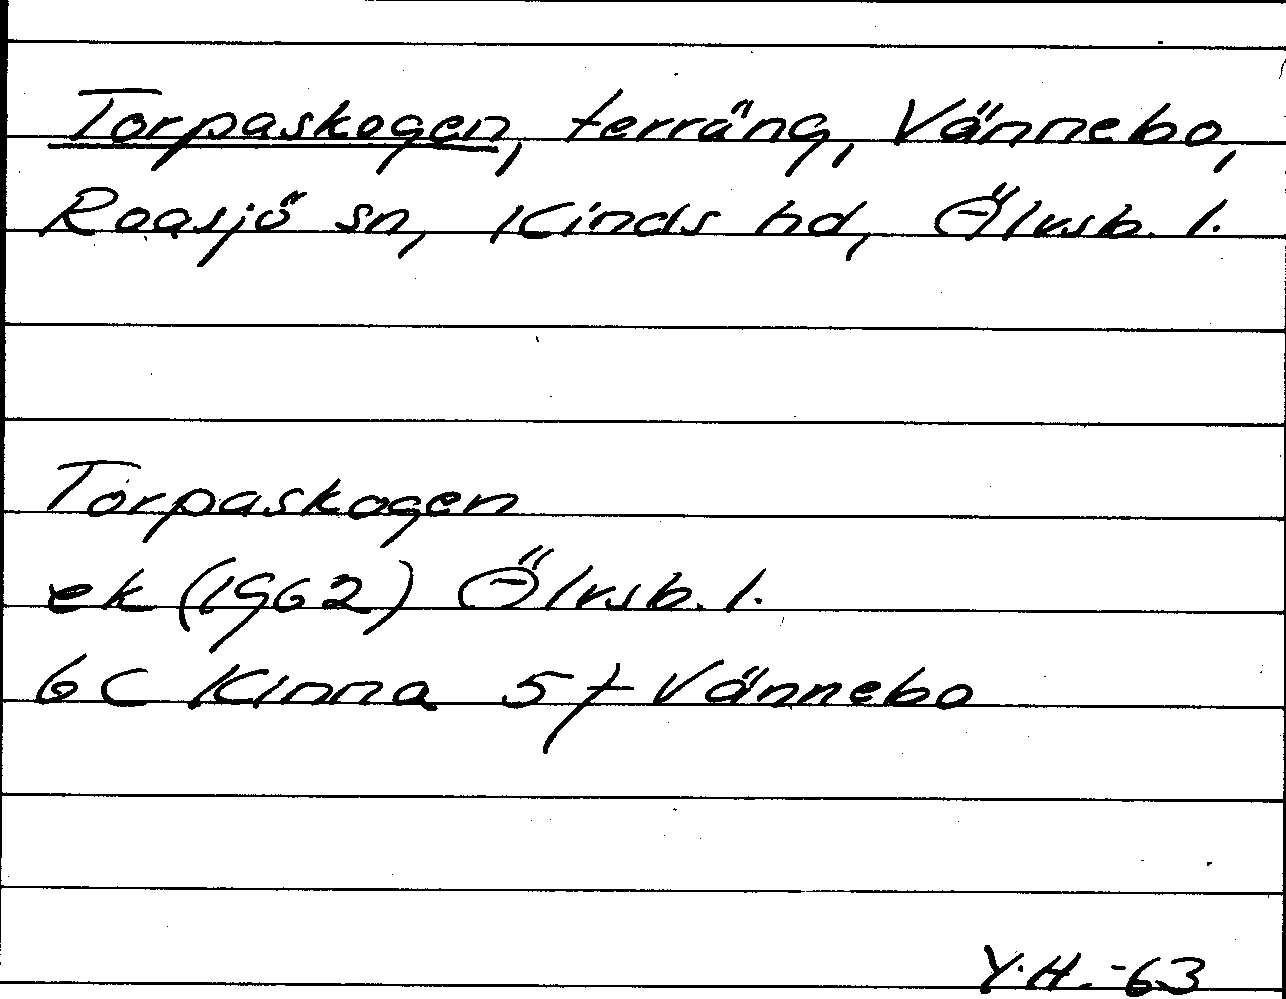 Torpaskogen, terräng, Vännebo,
Roasjö sn, Kinds hd, Älvsb. l.
Torpaskogen
ek (1962) Älvsb. l.
6C Kinna 5f Vännebo
Y.H. -63